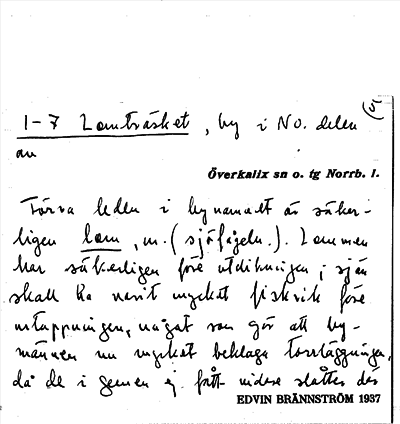 (5
1-7 Lomträsket, by i NO. delen
av
Överkalix sn o. tg Norrb. l.
Förra leden i bynamnet är säker-
ligen lom, m. (sjöfågeln.). Lommen
har säkerligen före utdikningen; sjön
skall ha varit mycket fiskrik före
urtappningen, något som gör att by-
männen nu mycket beklaga torrläggningen,
då de i gemen ej fått vidare slåtter där
EDVIN BRÄNNSTRÖM 1937